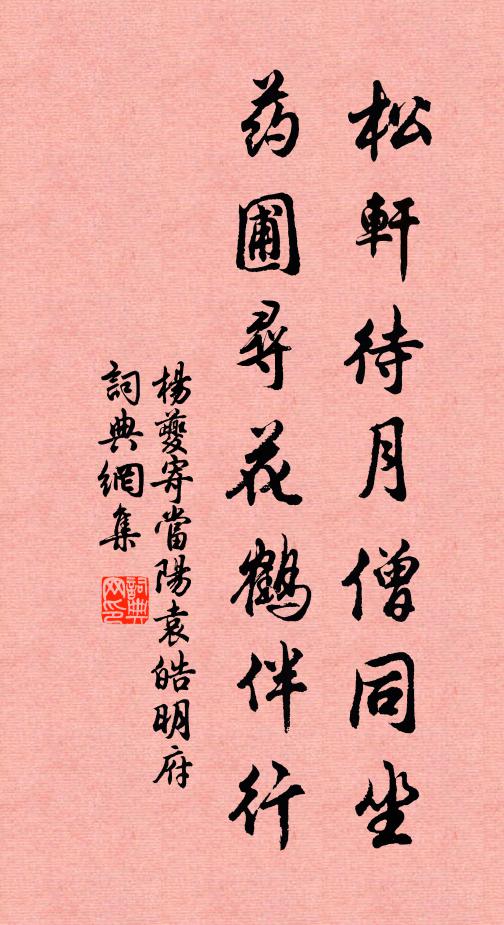 松軒待月僧同坐
药圃尋花鶴伴行
楊夔寄當陽袁皓明府
詞典網集
詞典網印